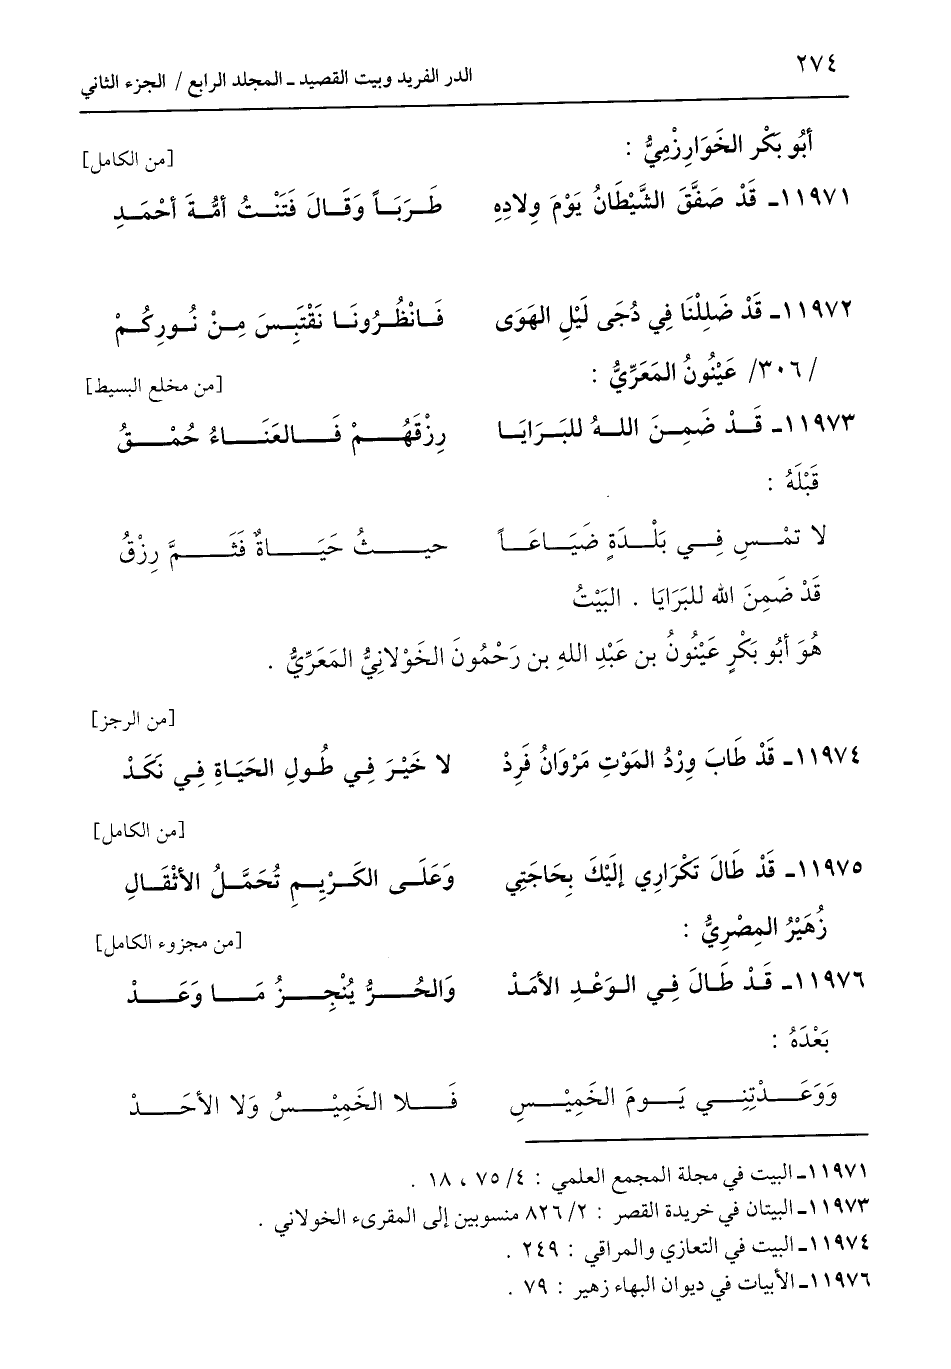 ٢٧٤
الدر الفريد وبيت القصيد ـ المجلد الرابع / الجزء الثاني
أبُو بَكْر الخَوَارِزْمِيُّ :
[من الكامل]
١١٩٧١ـ قَدْ صَفَّقَ الشَّيْطَانُ يَوْمَ وِلادِهِ طَرَبَاً وَقَالَ فَتَنْتُ أمَّةَ أحْمَدِ
١١٩٧٢ـ قَدْ ضَلِلْنَا فِي دُجَى لَيْلِ الهَوَى فَانْظُرُونَا نَقْتَبِسَ مِنْ نُورِكُمْ
/ ٣٠٦/ عَيْنُونُ المَعَرِّيُّ :
[من مخلع البسيط]
١١٩٧٣ـ قَدْ ضَمِنَ اللهُ للبَرَايَا رِزْقَهُمْ فَالعَنَاءُ حُمْقُ
قَبْلَهُ :
لا تمْسِ فِي بَلْدَةٍ ضَيَاعَاً حيثُ حَيَاةٌ فَثَمَّ رِزْقُ
قَدْ ضَمِنَ الله للبَرَايَا . البَيْتُ
هُوَ أبُو بَكْرٍ عَيْنُونُ بن عَبْدِ اللهِ بن رَحْمُونَ الخَوْلانِيُّ المَعَرِّيُّ .
[من الرجز]
١١٩٧٤ـ قَدْ طَابَ وِرْدُ المَوْتِ مَرْوَانُ فَرِدْ لا خَيْرَ فِي طُولِ الحَيَاةِ فِي نَكَدْ
[من الكامل]
١١٩٧٥ـ قَدْ طَالَ تَكْرَارِي إلَيْكَ بِحَاجَتِي وَعَلَى الكَرِيمِ تُحَمَّلُ الأثْقَالِ
زُهَيْرُ المِصْرِيُّ :
[من مجزوء الكامل]
١١٩٧٦ـ قَدْ طَالَ فِي الوَعْدِ الأمَدْ وَالحُرُّ يُنْجِزُ مَا وَعَدْ
بَعْدَهُ :
وَوَعَدْتِنِي يَومَ الخَمِيْسِ فَلا الخَمِيْسُ وَلا الأحَدْ
١١٩٧١ـ البيت في مجلة المجمع العلمي : ٤/ ٧٥ ، ١٨ .
١١٩٧٣ـ البيتان في خريدة القصر : ٢/ ٨٢٦ منسوبين إلى المقرىء الخولاني .
١١٩٧٤ـ البيت في التعازي والمراقي : ٢٤٩ .
١١٩٧٦ـ الأبيات في ديوان البهاء زهير : ٧٩ .